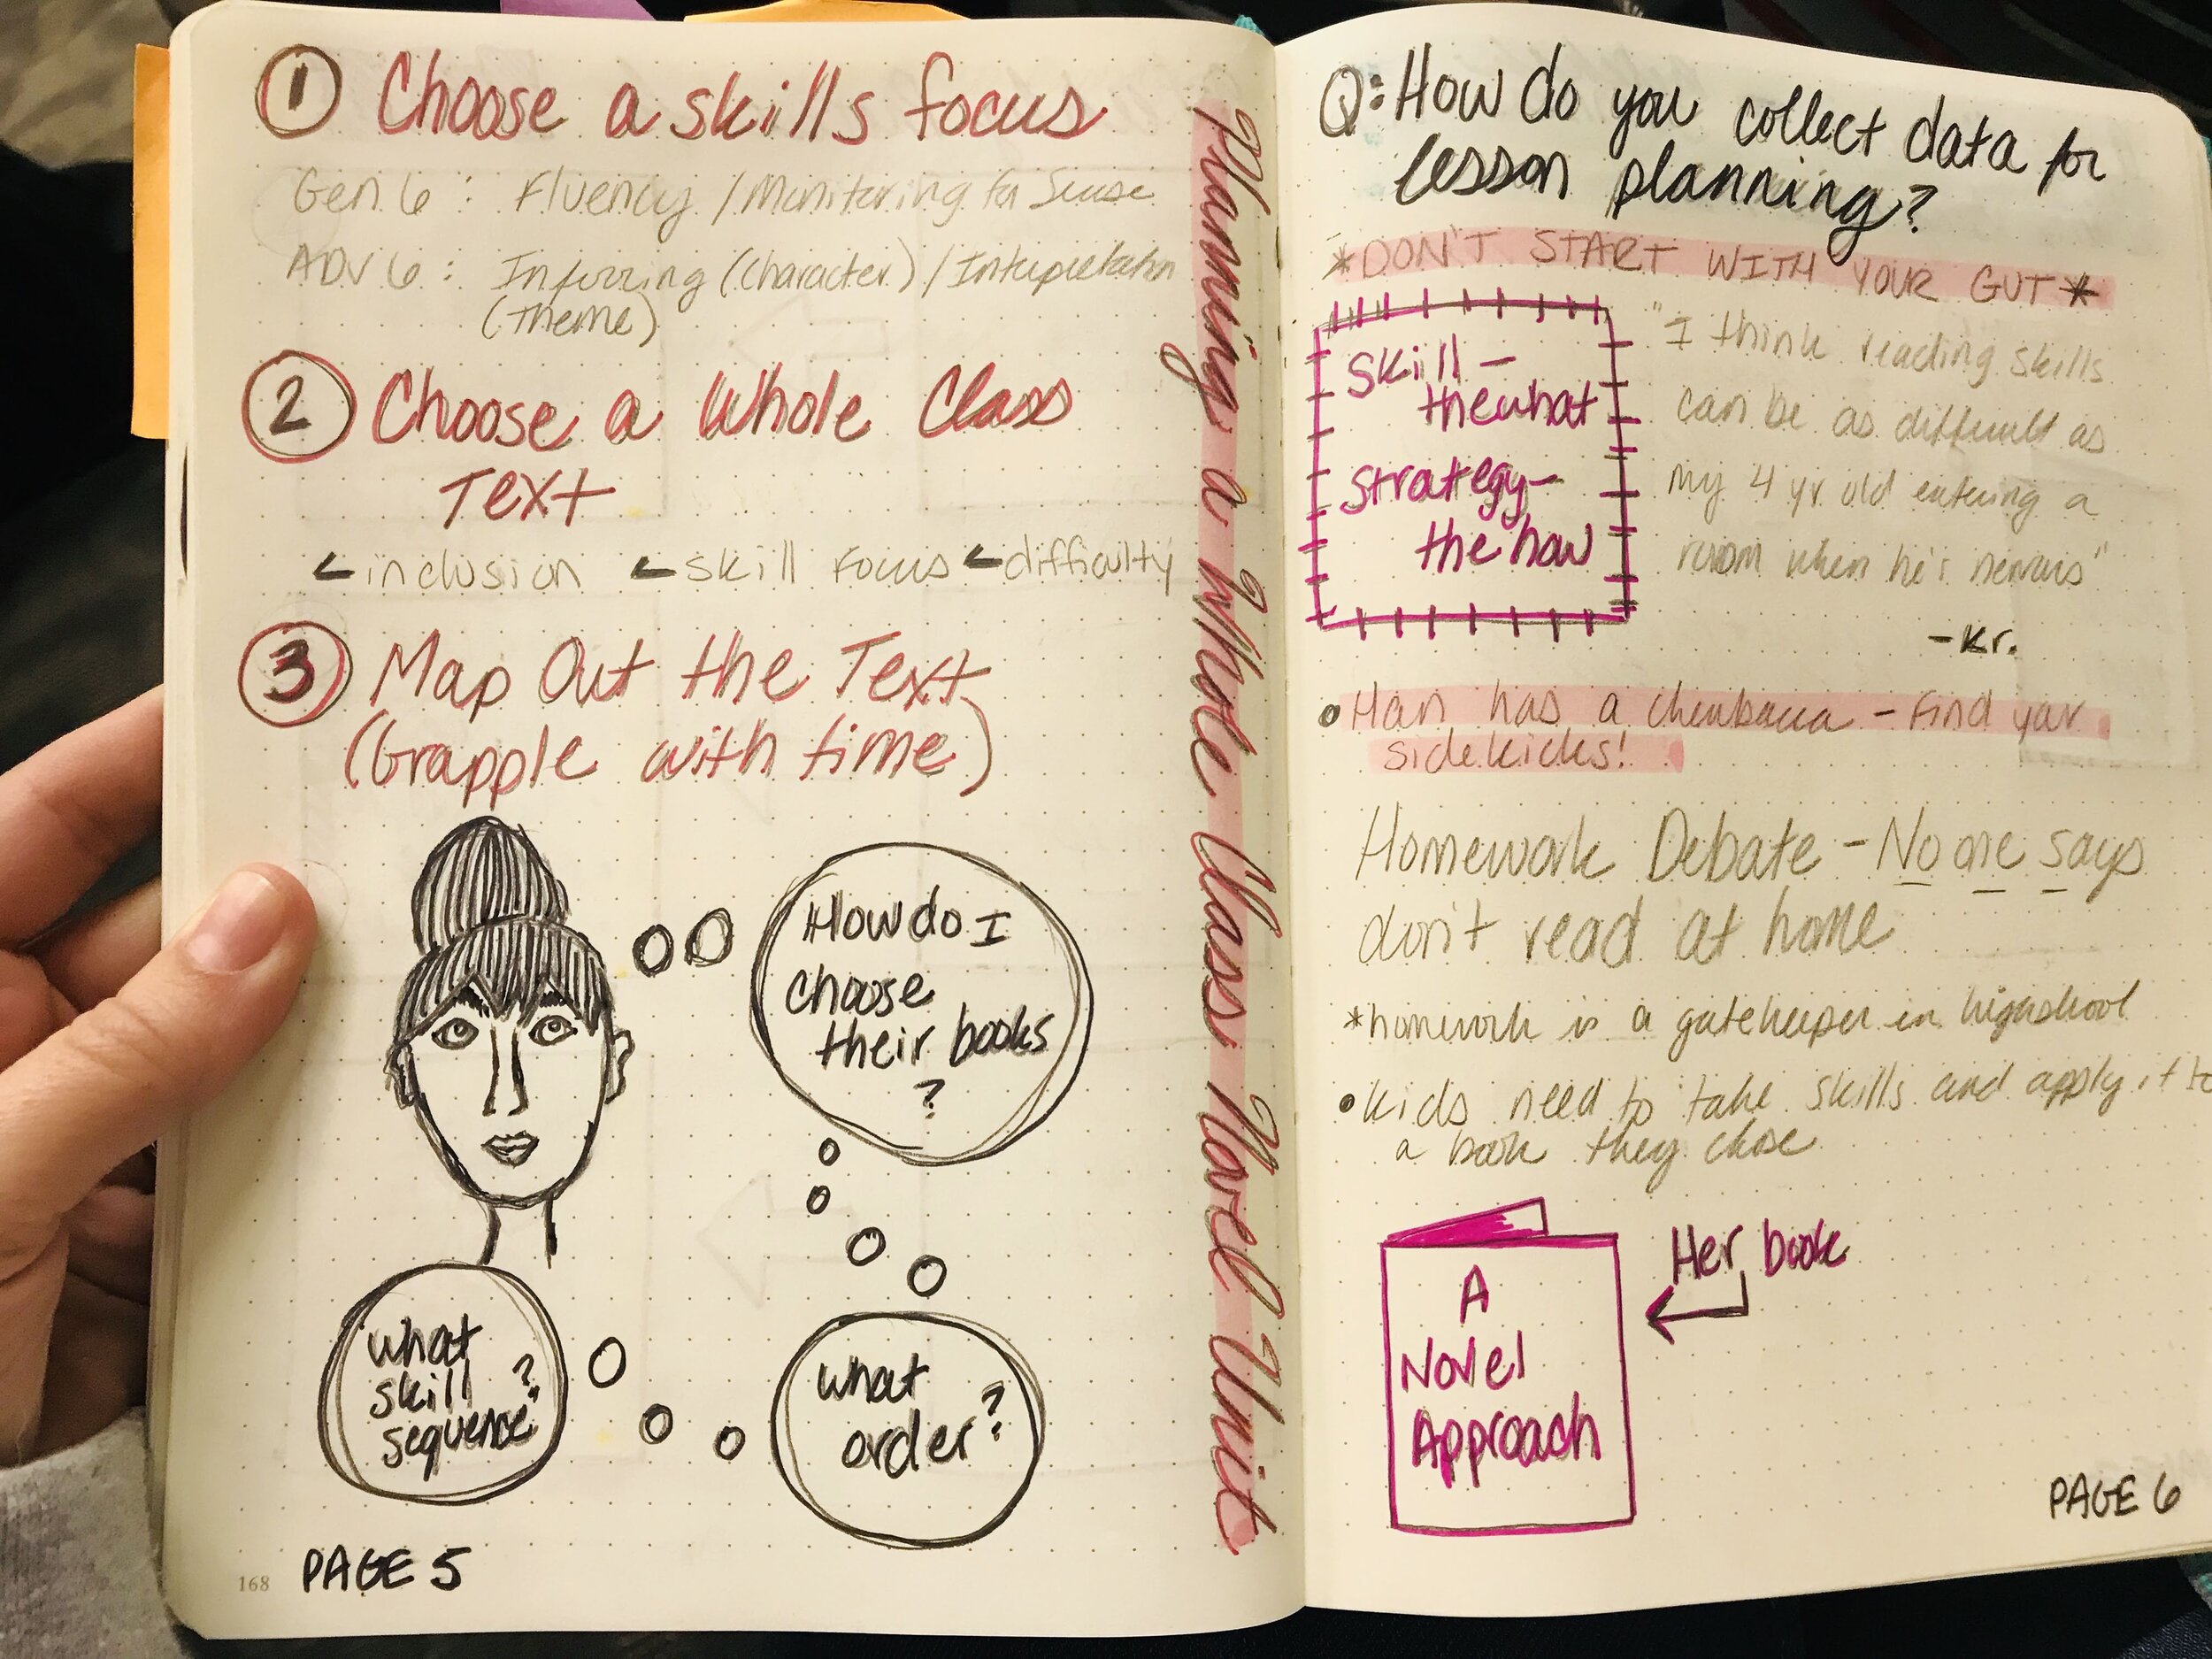 1 Choose a skills focus
Gen 6 : Fluency / Monitoring for Sense
ADV 6 : Inferring (Character) / Interpretation
(Theme)
2 Choose a Whole Class
Text
inclusion skill focus difficulty
3 Map Out the Text
(Grapple with time)
How do I
choose
their books
?
what
order?
what
skill ?
sequence
168 PAGE 5
Planning a Whole Class Novel Unit
Q: How do you collect data for
lesson planning?
*DON'T START WITH YOUR GUT*
Skill -
the what
strategy-
the how
"I think reading skills
can be as difficult as
my 4 yr old entering a
room when he's nervous"
-Kr.
• Han has a chewbacca - Find your
sidekicks!
Homework Debate - No one says
don't read at home
*homework is a gatekeeper in highschool
• kids need to take skills and apply it to
a book they chose
A
Novel
Approach
Her book
PAGE 6